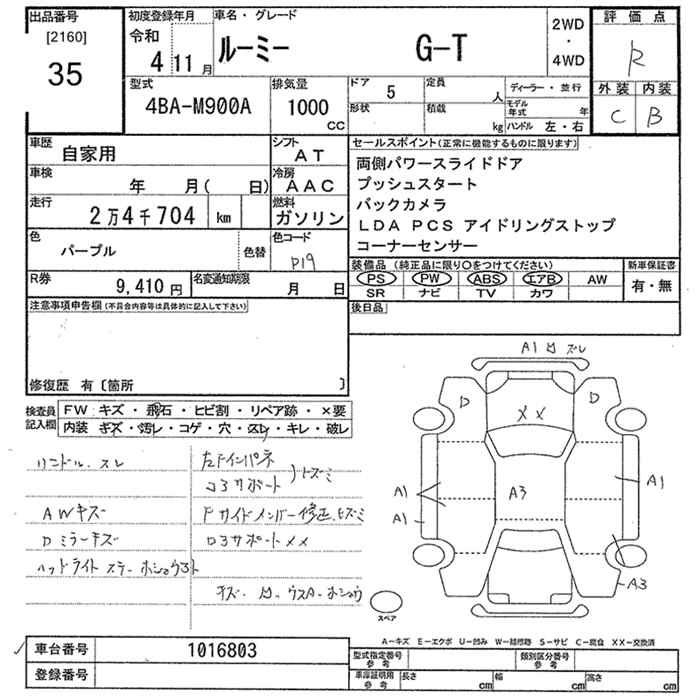 出品番号
[2160]
35
初度登録年月
令和
4 11月
車名・グレード
ルーミー G-T
2WD
・
4WD
評価点
R
外装 内装
C B
型式
4BA-M900A
排気量
1000
CC
ドア 5
形状
定員 人
積載 kg
ディーラー・並行
モデル年式 年
ハンドル 左・右
車歴
自家用
シフト
AT
車検
年 月( 日)
冷房
AAC
走行
2万4千704 km
燃料
ガソリン
色
パープル
色替
色コード
P19
R券
9,410円
名変通知期限
月 日
セールスポイント(正常に機能するものに限ります)
両側パワースライドドア
プッシュスタート
バックカメラ
LDA PCS アイドリングストップ
コーナーセンサー
装備品 (純正品に限り〇をつけてください)
PS PW ABS エアB AW
SR ナビ TV カワ
新車保証書
有・無
後日品
注意事項申告欄(不具合内容等は具体的に記入して下さい)
修復歴 有〔箇所 〕
検査員
記入欄
FW: キズ・飛石・ヒビ割・リペア跡・×要
内装 キズ・汚レ・コゲ・穴・スレ・キレ・破レ
ハンドル. スレ
AWキズ
Dミラーキズ
ヘッドライト
左Fインパネ
コアサポート
Fサイドメンバー修正、ヒズミ
コアサポート××
A1 凹 ズレ
D
D
××
A1
A1
A3
A1
A3
スペア
A-キズ E-エクボ U-凹み W-補修跡 S-サビ C-腐食 XX-交換済
車台番号 1016803
登録番号
型式指定番号
参考
類別区分番号
参考
車庫証明用
参考
長さ cm
幅 cm
高さ cm